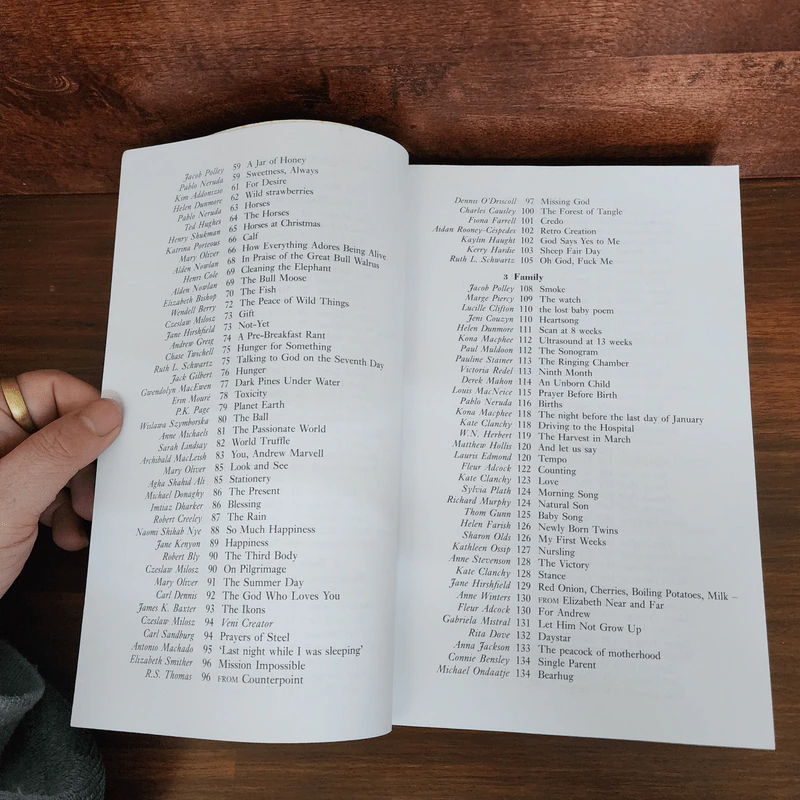 Jacob Polley 59 A Jar of Honey
Pablo Neruda 59 Sweetness, Always
Kim Addonizio 61 For Desire
Helen Dunmore 62 Wild strawberries
Pablo Neruda 63 Horses
Ted Hughes 64 The Horses
Henry Shukman 65 Horses at Christmas
Katrina Porteous 66 Calf
Mary Oliver 66 How Everything Adores Being Alive
Alden Nowlan 68 In Praise of the Great Bull Walrus
Henri Cole 69 Cleaning the Elephant
Alden Nowlan 69 The Bull Moose
Elizabeth Bishop 70 The Fish
Wendell Berry 72 The Peace of Wild Things
Czeslaw Milosz 73 Gift
Jane Hirshfield 73 Not-Yet
Andrew Greig 74 A Pre-Breakfast Rant
Chase Twichell 75 Hunger for Something
Ruth L. Schwartz 75 Talking to God on the Seventh Day
Jack Gilbert 76 Hunger
Gwendolyn MacEwen 77 Dark Pines Under Water
Erin Mouré 78 Toxicity
P.K. Page 79 Planet Earth
Wislawa Szymborska 80 The Ball
Anne Michaels 81 The Passionate World
Sarah Lindsay 82 World Truffle
Archibald MacLeish 83 You, Andrew Marvell
Mary Oliver 85 Look and See
Agha Shahid Ali 85 Stationery
Michael Donaghy 86 The Present
Imtiaz Dharker 86 Blessing
Robert Creeley 87 The Rain
Naomi Shihab Nye 88 So Much Happiness
Jane Kenyon 89 Happiness
Robert Bly 90 The Third Body
Czeslaw Milosz 90 On Pilgrimage
Mary Oliver 91 The Summer Day
Carl Dennis 92 The God Who Loves You
James K. Baxter 93 The Ikons
Czeslaw Milosz 94 Veni Creator
Carl Sandburg 94 Prayers of Steel
Antonio Machado 95 'Last night while I was sleeping'
Elizabeth Smither 96 Mission Impossible
R.S. Thomas 96 FROM Counterpoint
Dennis O'Driscoll 97 Missing God
Charles Causley 100 The Forest of Tangle
Fiona Farrell 101 Credo
Aidan Rooney-Céspedes 102 Retro Creation
Kaylin Haught 102 God Says Yes to Me
Kerry Hardie 103 Sheep Fair Day
Ruth L. Schwartz 105 Oh God, Fuck Me
3 Family
Jacob Polley 108 Smoke
Marge Piercy 109 The watch
Lucille Clifton 110 the lost baby poem
Jeni Couzyn 110 Heartsong
Helen Dunmore 111 Scan at 8 weeks
Kona Macphee 112 Ultrasound at 13 weeks
Paul Muldoon 112 The Sonogram
Pauline Stainer 113 The Ringing Chamber
Victoria Redel 113 Ninth Month
Derek Mahon 114 An Unborn Child
Louis MacNeice 115 Prayer Before Birth
Pablo Neruda 116 Births
Kona Macphee 118 The night before the last day of January
Kate Clanchy 118 Driving to the Hospital
W.N. Herbert 119 The Harvest in March
Matthew Hollis 120 And let us say
Lauris Edmond 120 Tempo
Fleur Adcock 122 Counting
Kate Clanchy 123 Love
Sylvia Plath 124 Morning Song
Richard Murphy 124 Natural Son
Thom Gunn 125 Baby Song
Helen Farish 126 Newly Born Twins
Sharon Olds 126 My First Weeks
Kathleen Ossip 127 Nursling
Anne Stevenson 128 The Victory
Kate Clanchy 128 Stance
Jane Hirshfield 129 Red Onion, Cherries, Boiling Potatoes, Milk –
Anne Winters 130 FROM Elizabeth Near and Far
Fleur Adcock 130 For Andrew
Gabriela Mistral 131 Let Him Not Grow Up
Rita Dove 132 Daystar
Anna Jackson 133 The peacock of motherhood
Connie Bensley 134 Single Parent
Michael Ondaatje 134 Bearhug